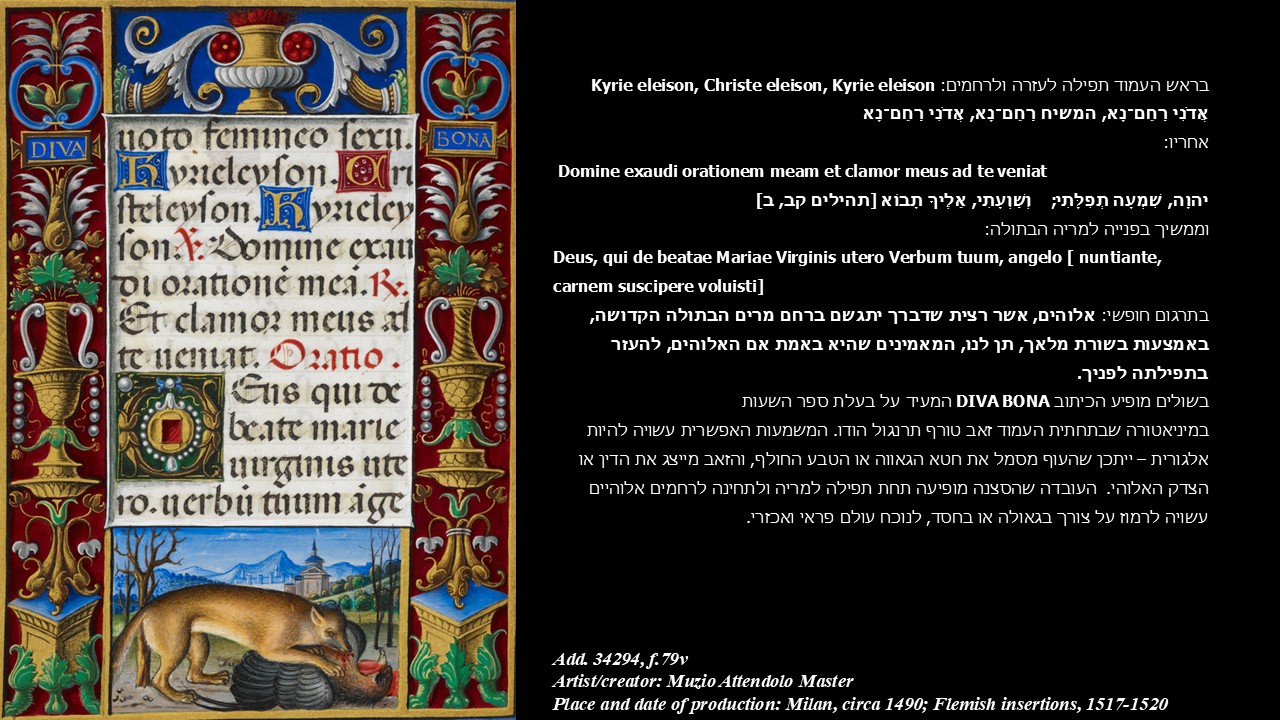 DIVA
BONA
uoto femineo sexu.
Kyrieleyson. Cri
steleyson. Kyrieley
son. V. Domine exau
di orationē meā. R.
Et clamor meus ad
te ueniat. Oratio.
Deus qui de
beate marie
uirginis ute
ro. uerbū tuum āge
בראש העמוד תפילה לעזרה ולרחמים: Kyrie eleison, Christe eleison, Kyrie eleison
אֲדֹנִי רַחֵם־נָא, המשיח רַחֵם־נָא, אֲדֹנִי רַחֵם־נָא
אחריו:
Domine exaudi orationem meam et clamor meus ad te veniat
יהוָה, שִׁמְעָה תְפִלָּתִי; וְשַׁוְעָתִי, אֵלֶיךָ תָבוֹא [תהילים קב, ב]
וממשיך בפנייה למריה הבתולה:
Deus, qui de beatae Mariae Virginis utero Verbum tuum, angelo [ nuntiante,
carnem suscipere voluisti]
בתרגום חופשי: אלוהים, אשר רצית שדברך יתגשם ברחם מרים הבתולה הקדושה,
באמצעות בשורת מלאך, תן לנו, המאמינים שהיא באמת אם האלוהים, להעזר
בתפילתה לפניך.
בשולים מופיע הכיתוב DIVA BONA המעיד על בעלת ספר השעות
במיניאטורה שבתחתית העמוד זאב טורף תרנגול הודו. המשמעות האפשרית עשויה להיות
אלגורית – ייתכן שהעוף מסמל את חטא הגאווה או הטבע החולף, והזאב מייצג את הדין או
הצדק האלוהי. העובדה שהסצנה מופיעה תחת תפילה למריה ולתחינה לרחמים אלוהיים
עשויה לרמוז על צורך בגאולה או בחסד, לנוכח עולם פראי ואכזרי.
Add. 34294, f.79v
Artist/creator: Muzio Attendolo Master
Place and date of production: Milan, circa 1490; Flemish insertions, 1517-1520